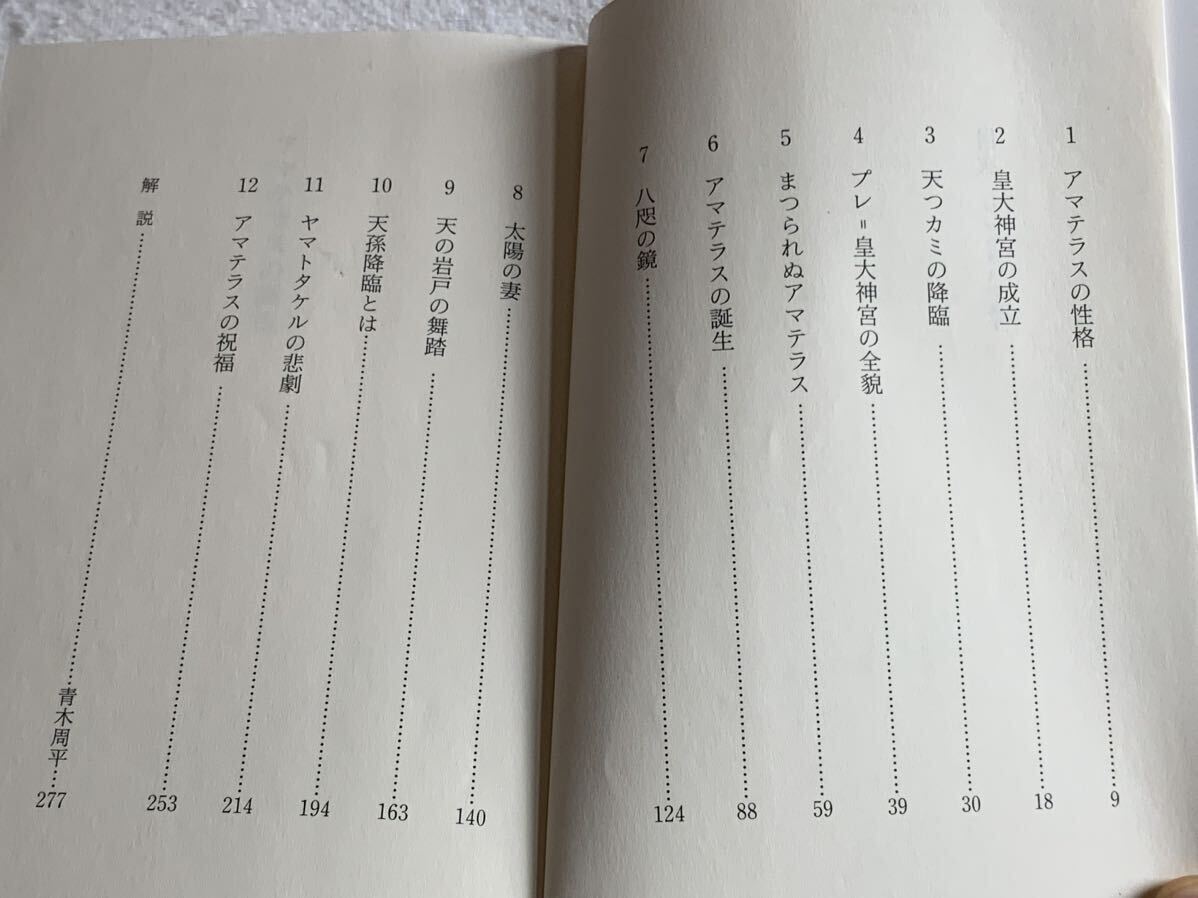 1 アマテラスの性格……9
2 皇大神宮の成立……18
3 天つカミの降臨……30
4 プレ=皇大神宮の全貌……39
5 まつられぬアマテラス……59
6 アマテラスの誕生……88
7 八咫の鏡……124
8 太陽の妻……140
9 天の岩戸の舞踏……163
10 天孫降臨とは……194
11 ヤマトタケルの悲劇……214
12 アマテラスの祝福……253
解説……青木周平…277